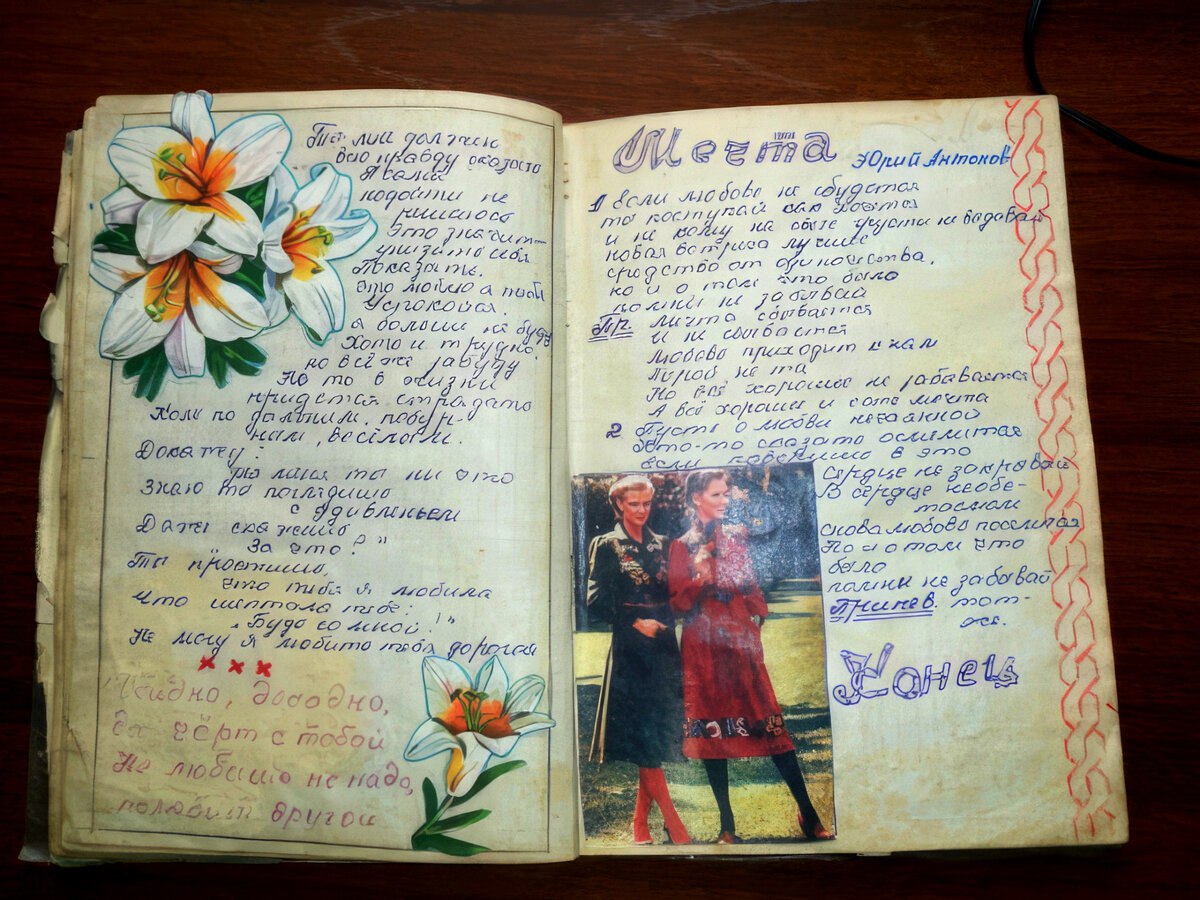 Ты мне должен
всю правду сказать
Я сама
подойти не
решаюсь
Это значит
унизить себя
Показать,
что люблю я тебя
Успокойся.
я больше не буду
Хоть и трудно,
но всё же забуду
Но то в жизни
придется страдать
Коль по дальним,
нам, весёлым.
Докажу:
знаю ты поглядишь
с удивленьем
Даже скажешь
За что? "
Ты простишь,
что тебя я любила
Что шептала тебе:
„Будь со мной! "
Не могу я любить тебя дорогой
х х х
Обидно, досадно,
да чёрт с тобой
Не любишь не надо,
полюбит другой
Мечта
Юрий Антонов
1 Если любовь не сбудется
ты поступай как хочется
и никому на свете грусти не выдавай
новая встреча лучшее
средство от одиночества,
но и о том что было
помни не забывай
Пр. мечта сбывается
и не сбывается
любовь приходит к нам
порой не та
Но всё хорошее не забывается
А всё хорошее и есть мечта
2 Пусть о любви нежданной
Кто-то сказать осмелится
если поверишь в это
Сердце не закрывай
В сердце необе-
тоском
снова любовь поселится
Но и о том что
было
помни не забывай
Припев. тот-
же.
Конец